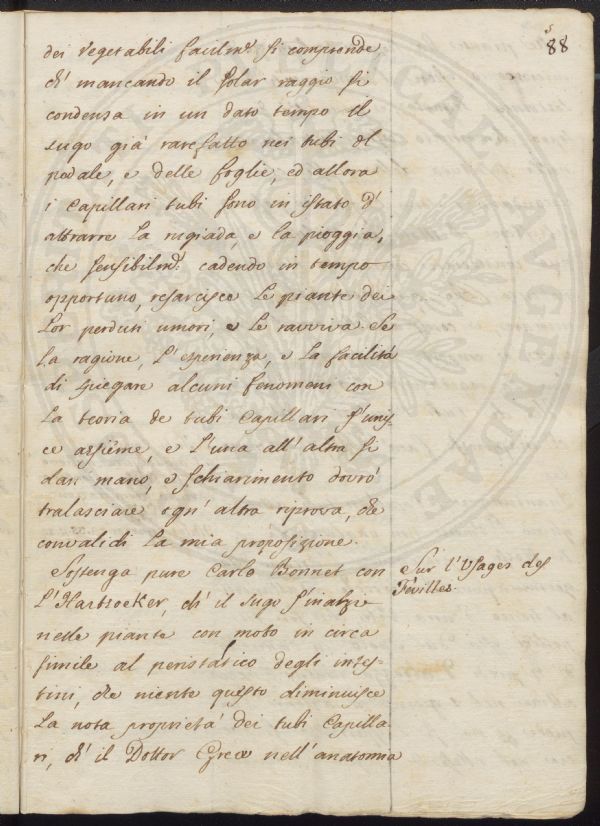 88
dei Vegetabili facilmᵉ si comprende
ch' mancando il solar raggio si
condensa in un dato tempo il
sugo già rarefatto nei tubi del
pedale, e delle foglie, ed allora
i Capillari tubi sono in istato d'
attrarre la rugiada, e la pioggia,
che sensibilmᵉ: cadendo in tempo
opportuno, resarcisce le piante dei
lor perduti umori, e le ravviva. Se
la ragione, l'esperienza, e la facilità
di spiegare alcuni fenomeni con
la teoria de tubi Capillari s'unis-
ce assieme, e l'una all'altra si
dan mano, e schiarimento dovrò
tralasciare ogn' altra riprova, che
convalidi la mia proposizione.
Sostenga pure Carlo Bonnet con
l'Hartsoeker, ch' il sugo s'inalzi
nelle piante con moto in circa
simile al peristaltico degli intes-
tini, che niente questo diminuisce
la nota proprietà dei tubi Capilla
ri, ch' il Dottor Grew nell'anatomia
Sur l'Usages des
Fevilles.